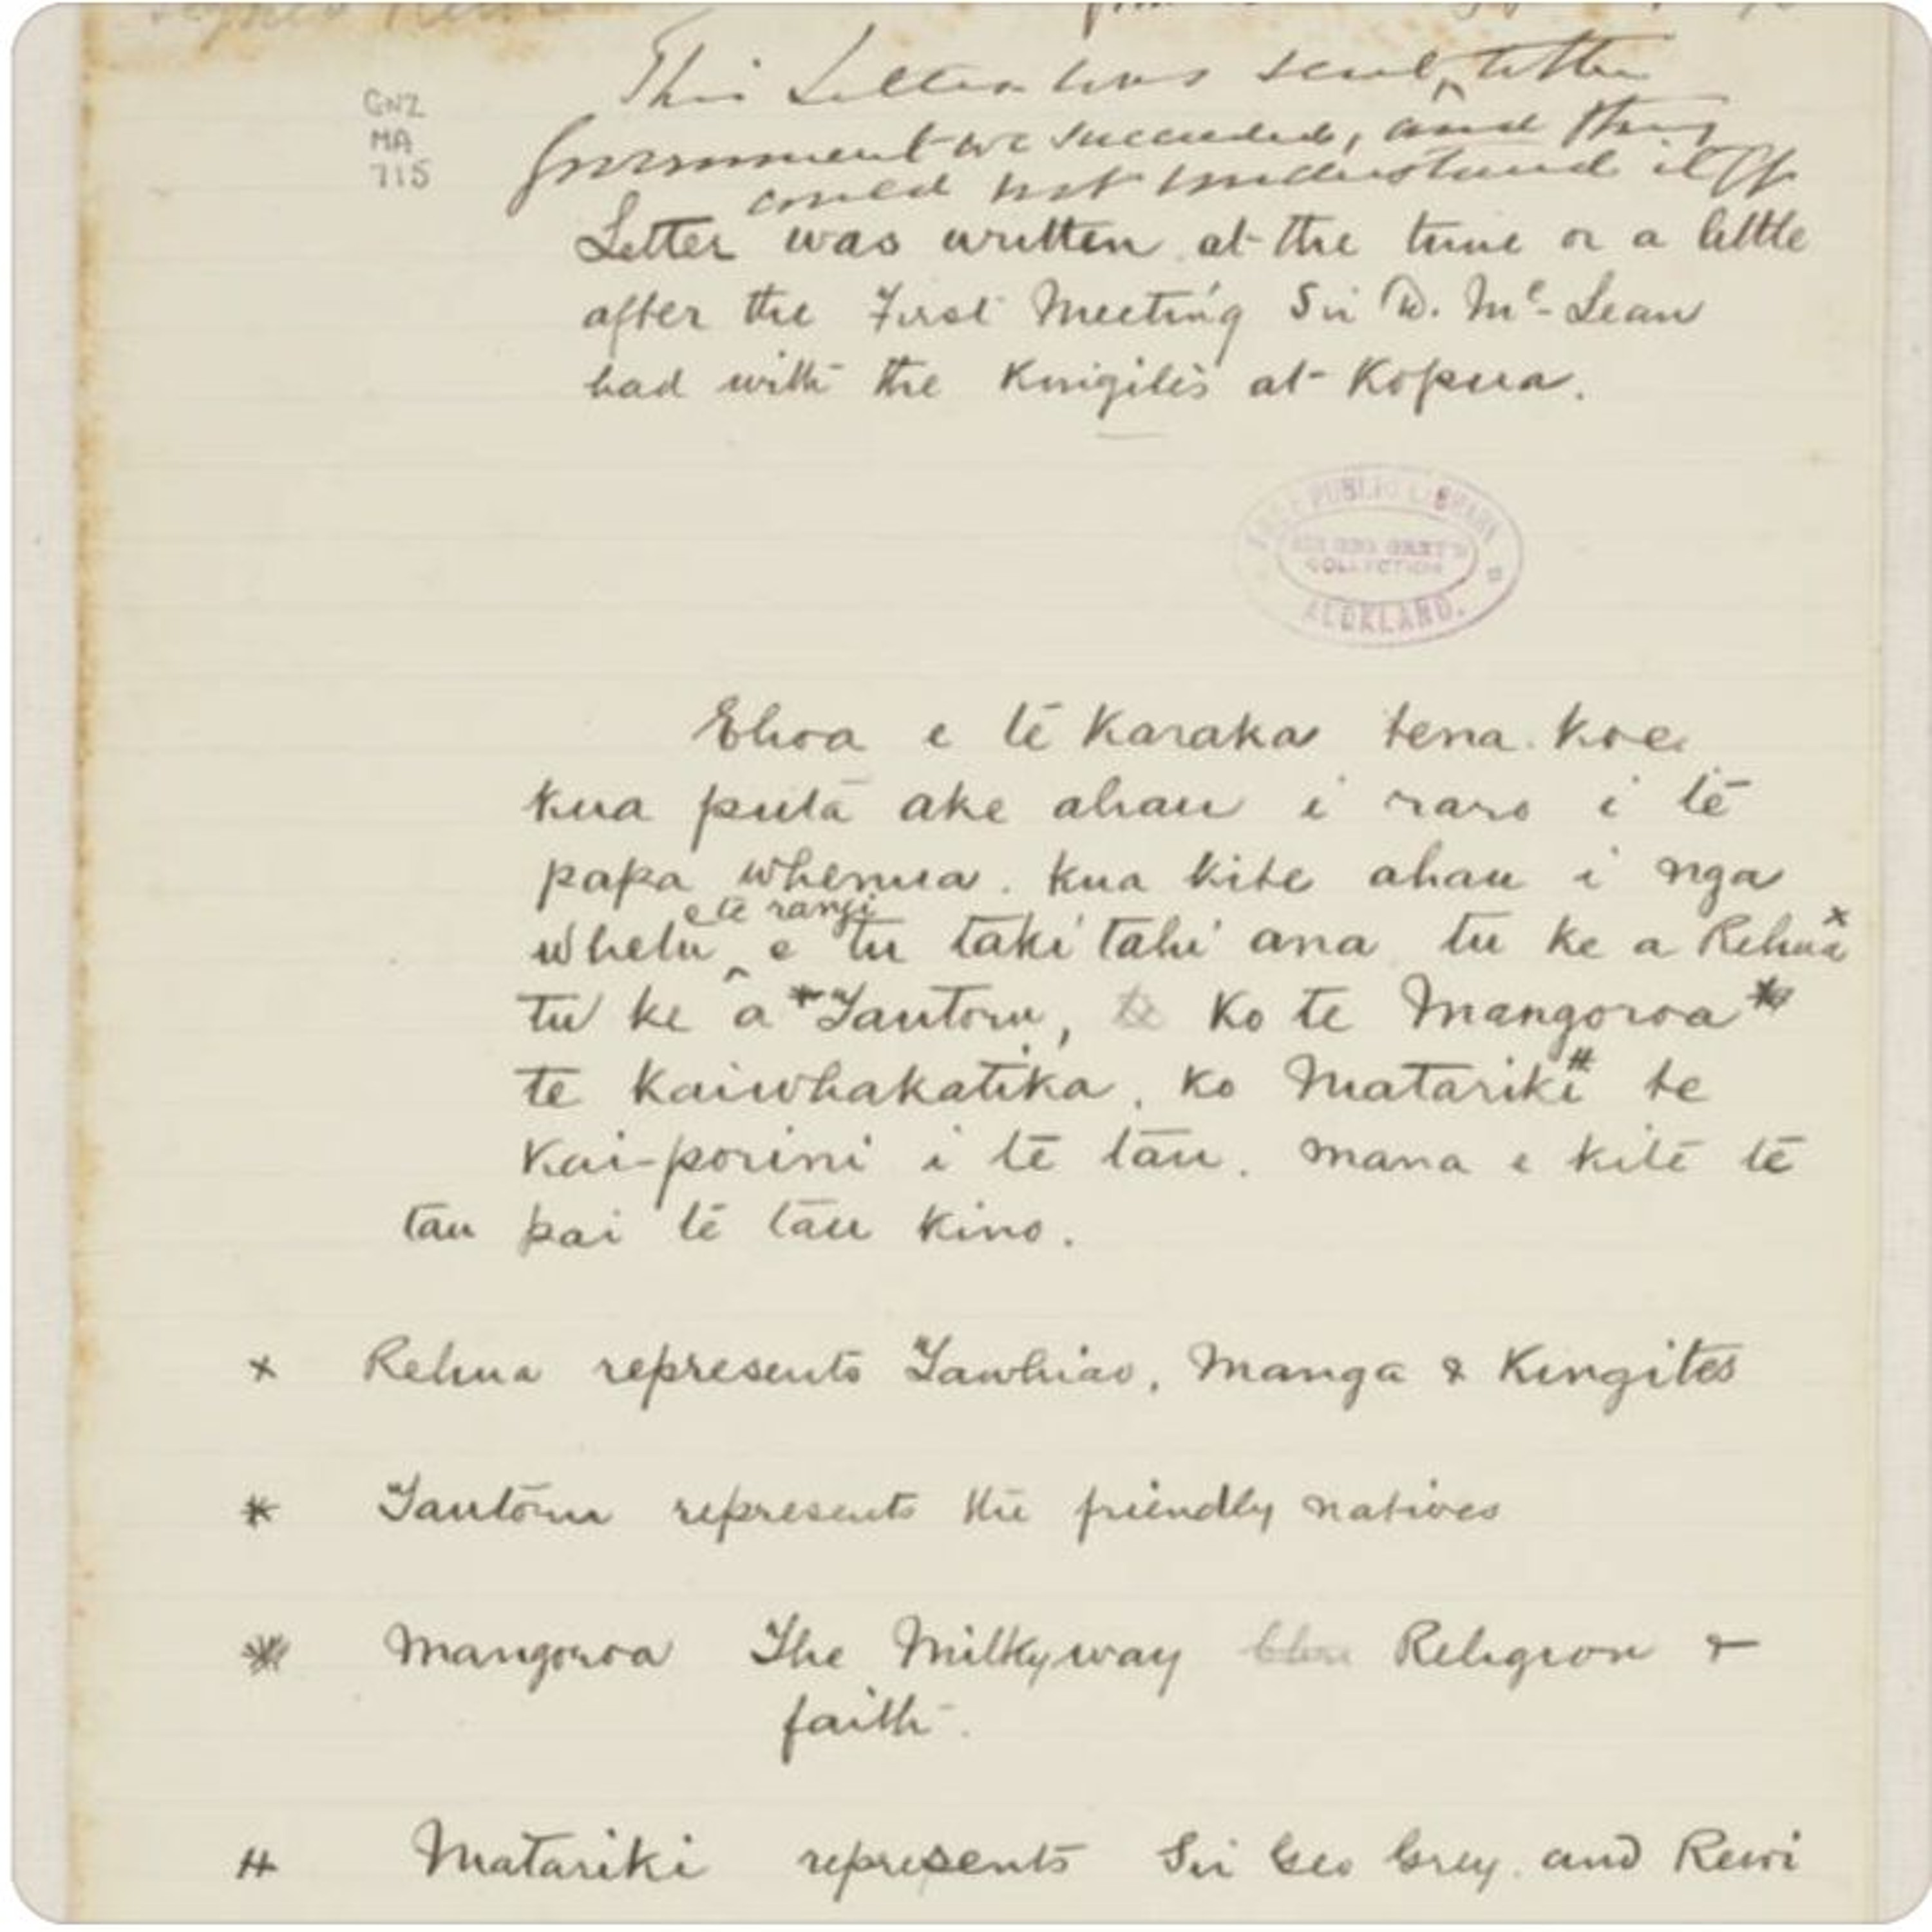 This Letter was sent to the
Government we succeeded, and they
could not understand it
GNZ
MA
715
Letter was written at the time or a little
after the First Meeting Sir D. Mc-Lean
had with the Kingites at Kopua.
FREE PUBLIC LIBRARY
SIR GEO GREY'S
COLLECTION
AUCKLAND.
Ehoa e te Karaka tena koe
kua puta ake ahau i raro i te
papa whenua. kua kite ahau i nga
e te rangi
whetu ^ e tu taki tahi ana tu ke a Rehua x
tu ke a * Tautoru, Ko te Mangoroa *
te kaiwhakatika, ko Matariki # te
Kai-porini i te tau. mana e kite te
tau pai te tau kino.
x Rehua represents Tawhiao, Manga & Kingites
* Tautoru represents the friendly natives
* Mangoroa The Milkyway Religion &
faith.
# Matariki represents Sir Geo Grey and Rewi